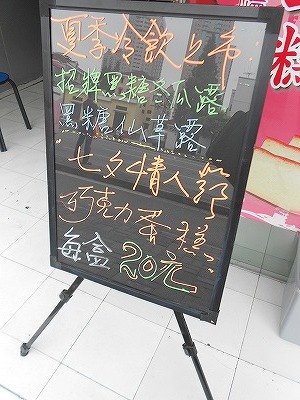 夏季冷飲上市
招牌黑糖冬瓜露
黑糖仙草露
七夕情人節
巧克力蛋糕
每盒20元
糕